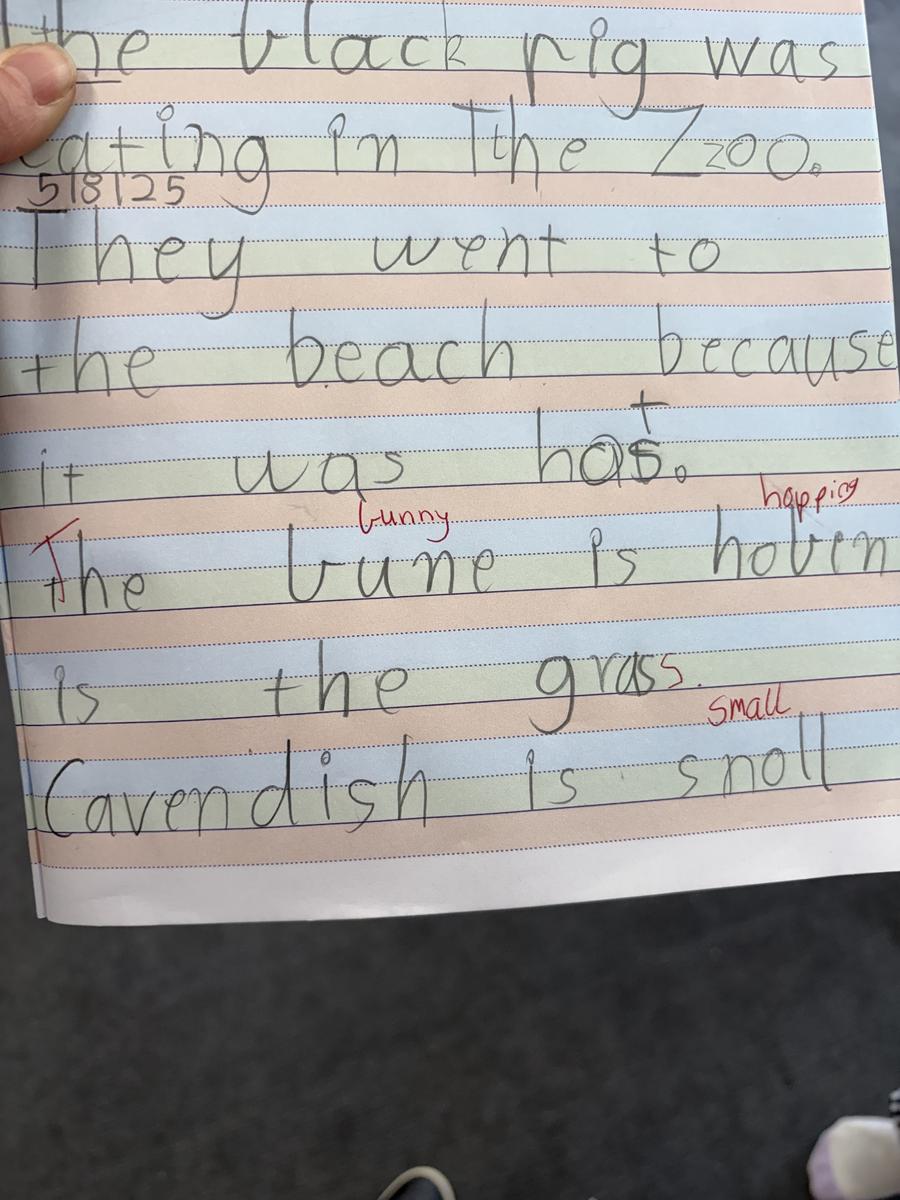 the black pig was
eating in Tthe Zzoo.
5/8/25
They went to
the beach because
it was hot.
bunny happing
The bune is hoben
is the grass.
small
Cavendish is snoll